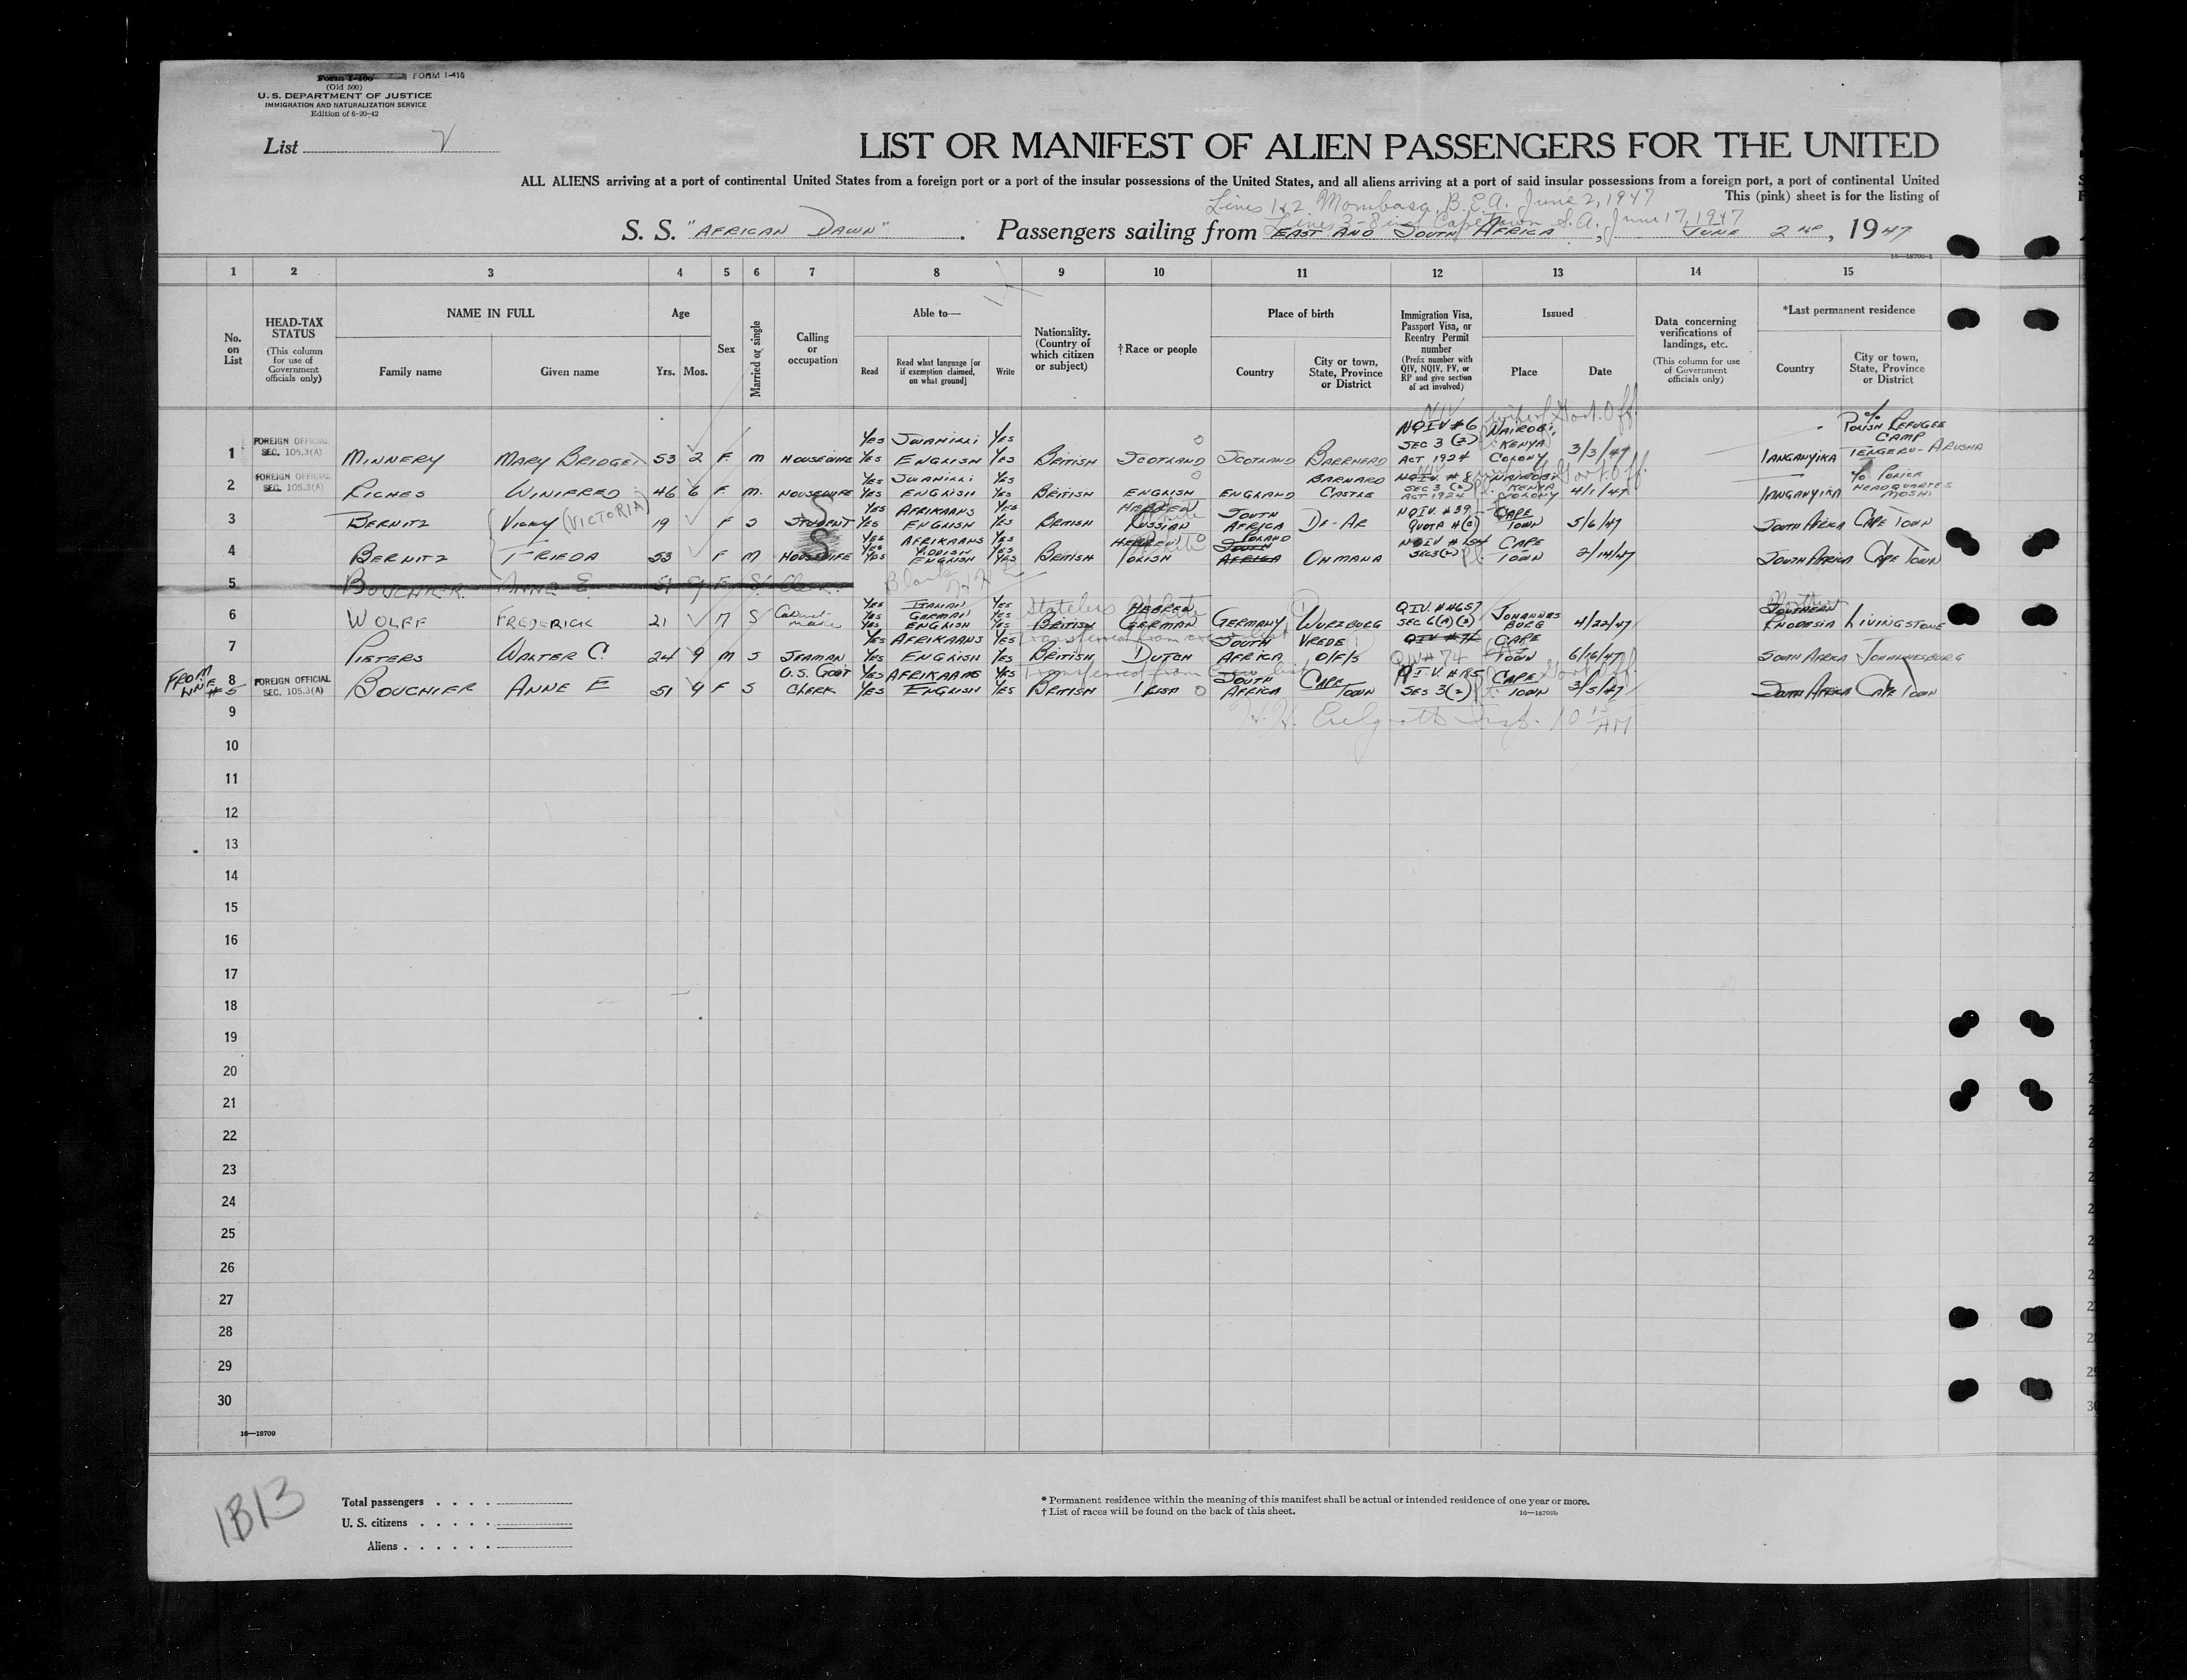 Form I-400 FORM I-415
(Old 500)
U. S. DEPARTMENT OF JUSTICE
IMMIGRATION AND NATURALIZATION SERVICE
Edition of 6-20-42
List 2
LIST OR MANIFEST OF ALIEN PASSENGERS FOR THE UNITED
ALL ALIENS arriving at a port of continental United States from a foreign port or a port of the insular possessions of the United States, and all aliens arriving at a port of said insular possessions from a foreign port, a port of continental United
This (pink) sheet is for the listing of
Lines 1&2 Mombasa, B.E.A. June 2, 1947
Lines 3-8 incl Capetown S.A., June 17, 1947
S. S. "AFRICAN DAWN". Passengers sailing from EAST AND SOUTH AFRICA, JUNE 2ND, 1947
1 2 3 4 5 6 7 8 9 10 11 12 13 14 15
No. on List
HEAD-TAX STATUS (This column for use of Government officials only)
NAME IN FULL Family name Given name
Age Yrs. Mos.
Sex
Married or single
Calling or occupation
Able to— Read Read what language [or if exemption claimed, on what ground] Write
Nationality. (Country of which citizen or subject)
†Race or people
Place of birth Country City or town, State, Province or District
Immigration Visa, Passport Visa, or Reentry Permit number (Prefix number with QIV, NQIV, PV, or RP and give section of act involved)
Issued Place Date
Data concerning verifications of landings, etc. (This column for use of Government officials only)
*Last permanent residence Country City or town, State, Province or District
1 FOREIGN OFFICIAL SEC. 105.3(A) MINNERY MARY BRIDGET 53 2 F M HOUSEWIFE YES SWAHILI YES YES ENGLISH YES BRITISH SCOTLAND SCOTLAND BARRHEAD NQIV #6 SEC 3 (2) ACT 1924 NAIROBI, KENYA COLONY 3/3/47 TANGANYIKA c/o POLISH REFUGEE CAMP TENGERU-ARUSHA
2 FOREIGN OFFICIAL SEC. 105.3(A) RICHES WINIFRED 46 6 F M HOUSEWIFE YES SWAHILI YES YES ENGLISH YES BRITISH ENGLISH ENGLAND BARNARD CASTLE NQIV. #8 SEC 3 (2) ACT 1924 NAIROBI KENYA COLONY 4/1/47 TANGANYIKA c/o POLICE HEADQUARTERS MOSHI
3 BERNITZ VICKY (VICTORIA) 19 F S STUDENT YES AFRIKAANS YES YES ENGLISH YES BRITISH HEBREW White RUSSIAN SOUTH AFRICA DE-AR NQIV. #39 QUOTA CAPE TOWN 5/6/47 SOUTH AFRICA CAPE TOWN
4 BERNITZ FRIEDA 53 F M HOUSEWIFE YES AFRIKAANS YES YES YIDDISH YES YES ENGLISH YES BRITISH HEBREW White POLISH POLAND SOUTH AFRICA OHMANA NQIV SEC 3(2) CAPE TOWN 2/14/47 SOUTH AFRICA CAPE TOWN
5 BOUCHIER ANNE E. 51 9 F S Clerk Blank
6 WOLFF FREDERICK 21 M S Cabinet-maker YES ITALIAN YES YES GERMAN YES YES ENGLISH YES Stateless BRITISH HEBREW White GERMAN GERMANY WURZBURG QIV. #4657 SEC 6(A)(3) JOHANNESBURG 4/22/47 Northern SOUTHERN RHODESIA LIVINGSTONE
7 PIETERS WALTER C. 24 9 M S SEAMAN YES AFRIKAANS YES YES ENGLISH YES Transferred from crew list BRITISH DUTCH SOUTH AFRICA VREDE O/F/S QIV #74 CAPE TOWN 6/16/47 SOUTH AFRICA JOHANNESBURG
FROM LINE #5 8 FOREIGN OFFICIAL SEC. 105.3(A) BOUCHIER ANNE E 51 9 F S U.S. GOVT CLERK YES AFRIKAANS YES YES ENGLISH YES Transferred from Crew list BRITISH IRISH SOUTH AFRICA CAPE TOWN SEC 3(2) CAPE TOWN 3/5/47 SOUTH AFRICA CAPE TOWN
9
10
11
12
13
14
15
16
17
18
19
20
21
22
23
24
25
26
27
28
29
30
16—18709
1813
Total passengers
U. S. citizens
Aliens
* Permanent residence within the meaning of this manifest shall be actual or intended residence of one year or more.
† List of races will be found on the back of this sheet.
16—18709b